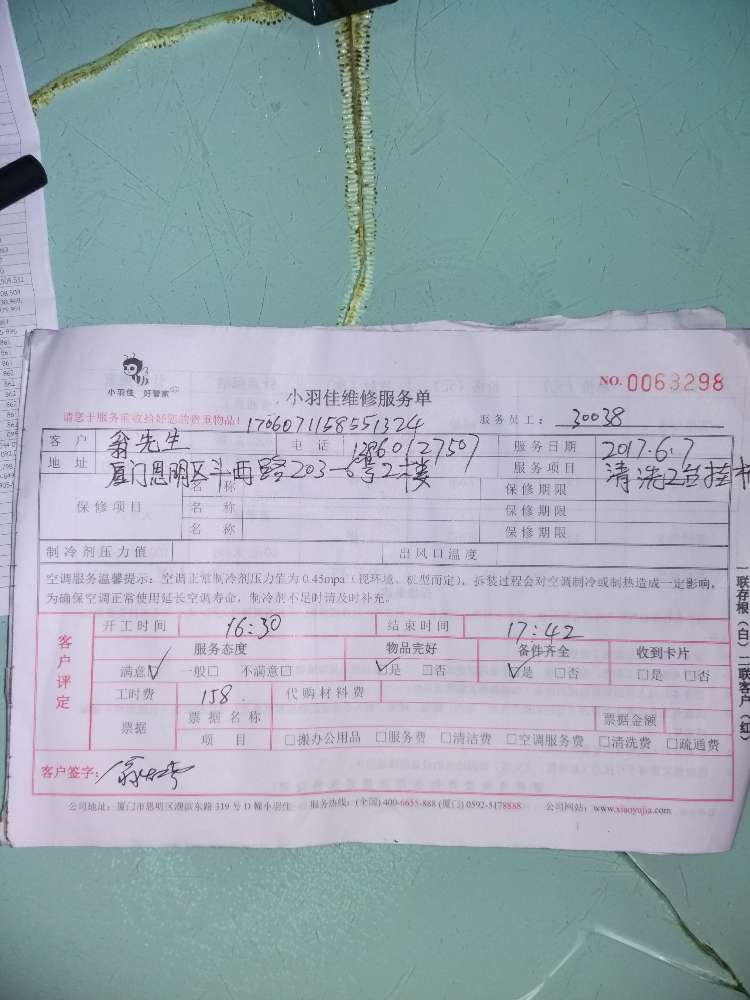 小羽佳 好管家
小羽佳维修服务单
NO. 0063298
请您于服务前收给好您的贵重物品!
1706071158551324
服务员工: 30038
客户 翁先生 电话 13860127507 服务日期 2017.6.7
地址 厦门思明区斗西路203-6号2楼 服务项目 清洗2台挂机
保修项目 名称 保修期限
名称 保修期限
名称 保修期限
制冷剂压力值 出风口温度
空调服务温馨提示:空调正常制冷剂压力值为0.45mpa(视环境、机型而定),拆装过程会对空调制冷或制热造成一定影响,
为确保空调正常使用延长空调寿命,制冷剂不足时请及时补充。
客户评定
开工时间 16:30 结束时间 17:42
服务态度 物品完好 备件齐全 收到卡片
满意☑ 一般□ 不满意□ ☑是 □否 ☑是 □否 □是 □否
工时费 158. 代购材料费
票据 票据名称 票据金额
项目 □搬办公用品 □服务费 □清洁费 □空调服务费 □清洗费 □疏通费
客户签字:
公司地址:厦门市思明区湖滨东路319号D幢小羽佳 服务热线:(全国)400-6655-888 (厦门)0592-5178888 公司网站:www.xiaoyujia.com
一联存根(白)二联客户(红)